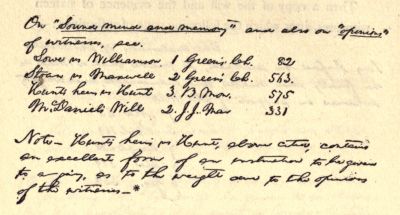 On "Sound mind and memory" and also on "opinions"
of witness, see.
Lowe vs Williamson. 1 Green's Ch. 82
Sloan vs Maxwell 2 Green's Ch. 563.
Hunts heirs vs Hunt 3. B. Mon. 575
McDaniel's Will 2. J.J. Mar 331
Note - Hunts heirs vs Hunt, above cited, contains
an excellent form of an instruction to be given
to a jury, as to the weight due to the opinions
of the witness - *